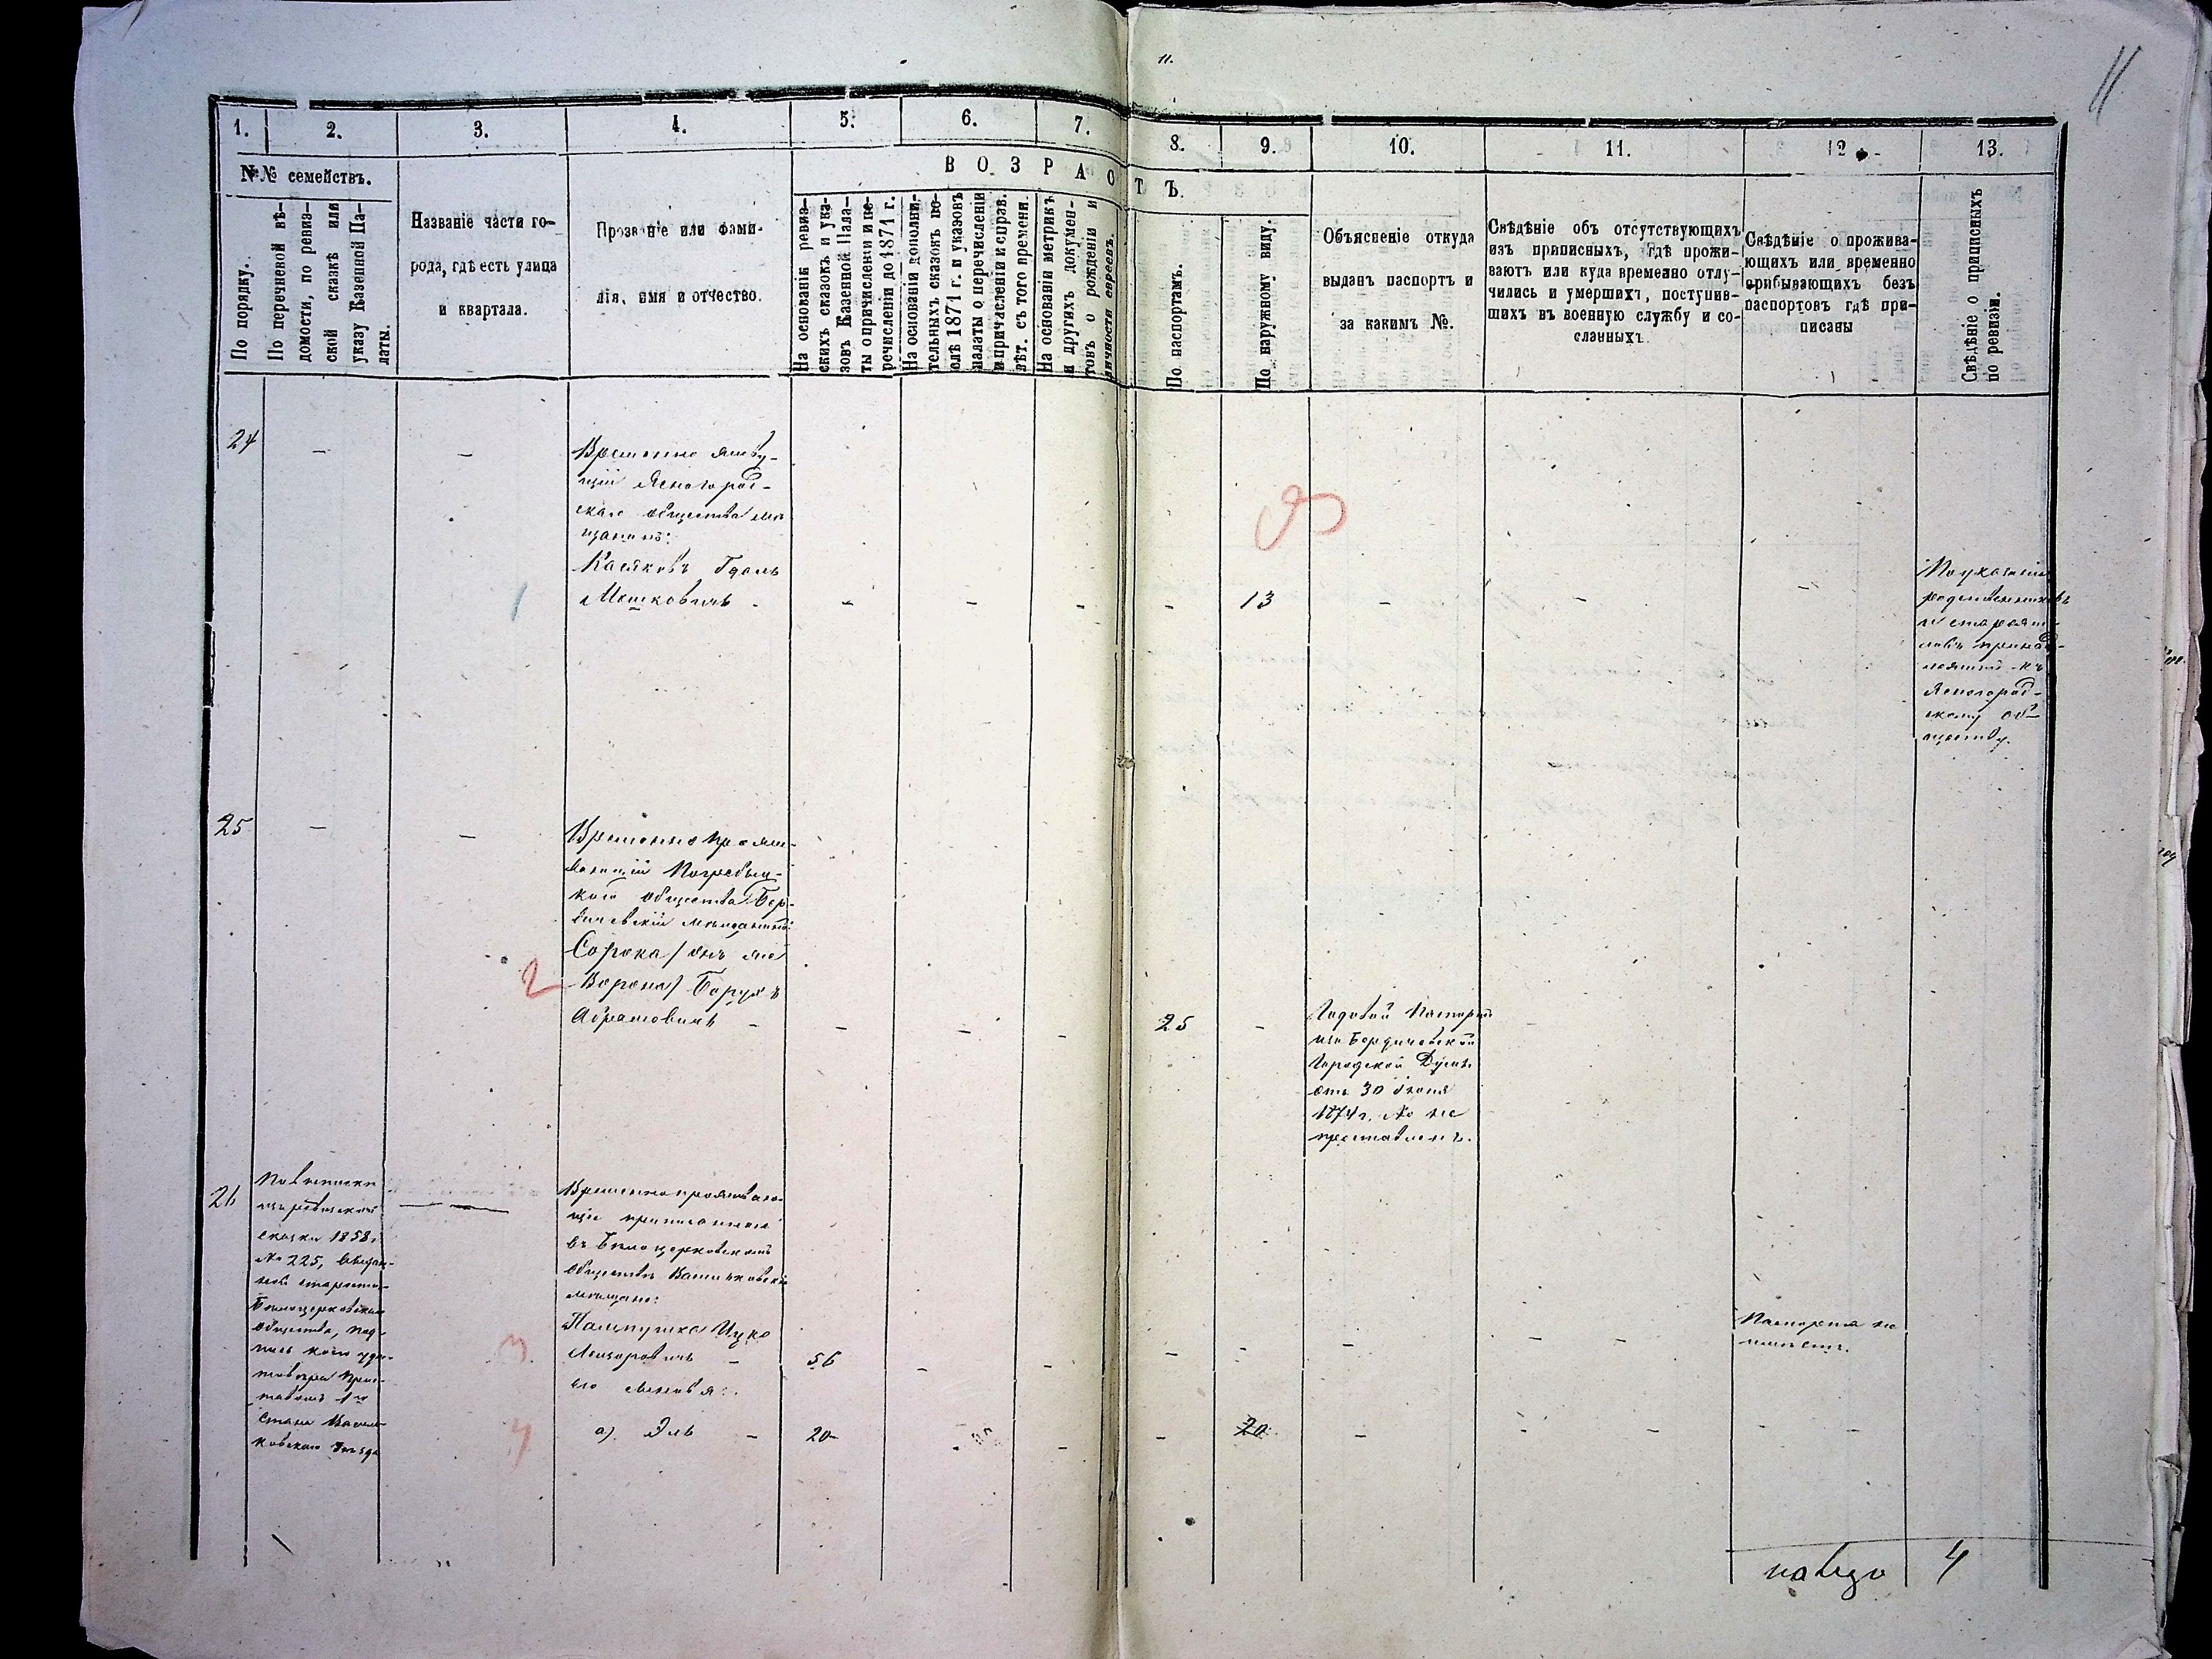 11.
11
1. 2. 3. 4. 5. 6. 7. 8. 9. 10. 11. 12. 13.
№№ семействъ.
По порядку.
По перечневой вѣ-
домости, по ревиз-
ской сказкѣ или
указу Казенной Па-
латы.
Названіе части го-
рода, гдѣ есть улица
и квартала.
Прозваніе или фами-
лія, имя и отчество.
ВОЗРАСТЪ.
На основаніи ревиз-
скихъ сказокъ и ука-
зовъ Казенной Пала-
ты о причисленіи и пе-
речисленіи до 1871 г.
На основаніи дополни-
тельныхъ сказокъ по-
слѣ 1871 г. и указовъ
палаты о перечисленіи
и причисленіи к справ.
лѣт. съ того времени.
На основаніи метрикъ
и другихъ докумен-
товъ о рожденіи и
личности евреевъ.
По паспортамъ.
По наружному виду.
Объясненіе откуда
выданъ паспортъ и
за какимъ №.
Свѣдѣніе объ отсутствующихъ
изъ приписныхъ, гдѣ прожи-
ваютъ или куда временно отлу-
чились и умершихъ, поступив-
шихъ въ военную службу и со-
сланныхъ.
Свѣдѣніе о прожива-
ющихъ или временно
прибывающихъ безъ
паспортовъ гдѣ при-
писаны
Свѣдѣніе о приписныхъ
по ревизіи.
24 — —
Временно живу-
щій Ясногород-
скаго общества мѣ
щанинъ:
1
Мошковичъ - - - - - 13 - - -
По указанію
родственниковъ
и старожи-
ловъ принад-
лежитъ къ
Ясногород-
скому об-
ществу.
25 — —
Временно прожи-
вающій Погребыщ-
каго общества Бер-
дичевскій мѣщанинъ:
Сорока / онъ же
2 Ворона / Борухъ
Абрамовичъ - - - - 25 - -
Годовой Паспортъ
изъ Бердичевской
Городской Думы
отъ 30 Іюня
1874 г. № не
проставленъ.
26
По выписки
изъ ревизской
сказки 1858 г.
№ 225, выдан-
ной старостой
Бѣлоцерковскаго
общества, под-
пись коего удо-
стовѣрена Прис-
тавомъ 1го
Стана Василь-
ковскаго Уѣзда
Временно прожываю-
щіе приписанные
въ Бѣлоцерковскомъ
обществѣ Васильковскіе
мѣщане:
3 Пампушка Ицко
Лейзоровичъ - 56 - - - - - - -
Паспорта не
имѣетъ.
его сыновья:
4 а) Эль - 20 - - 20 - - - -
на лицо 4